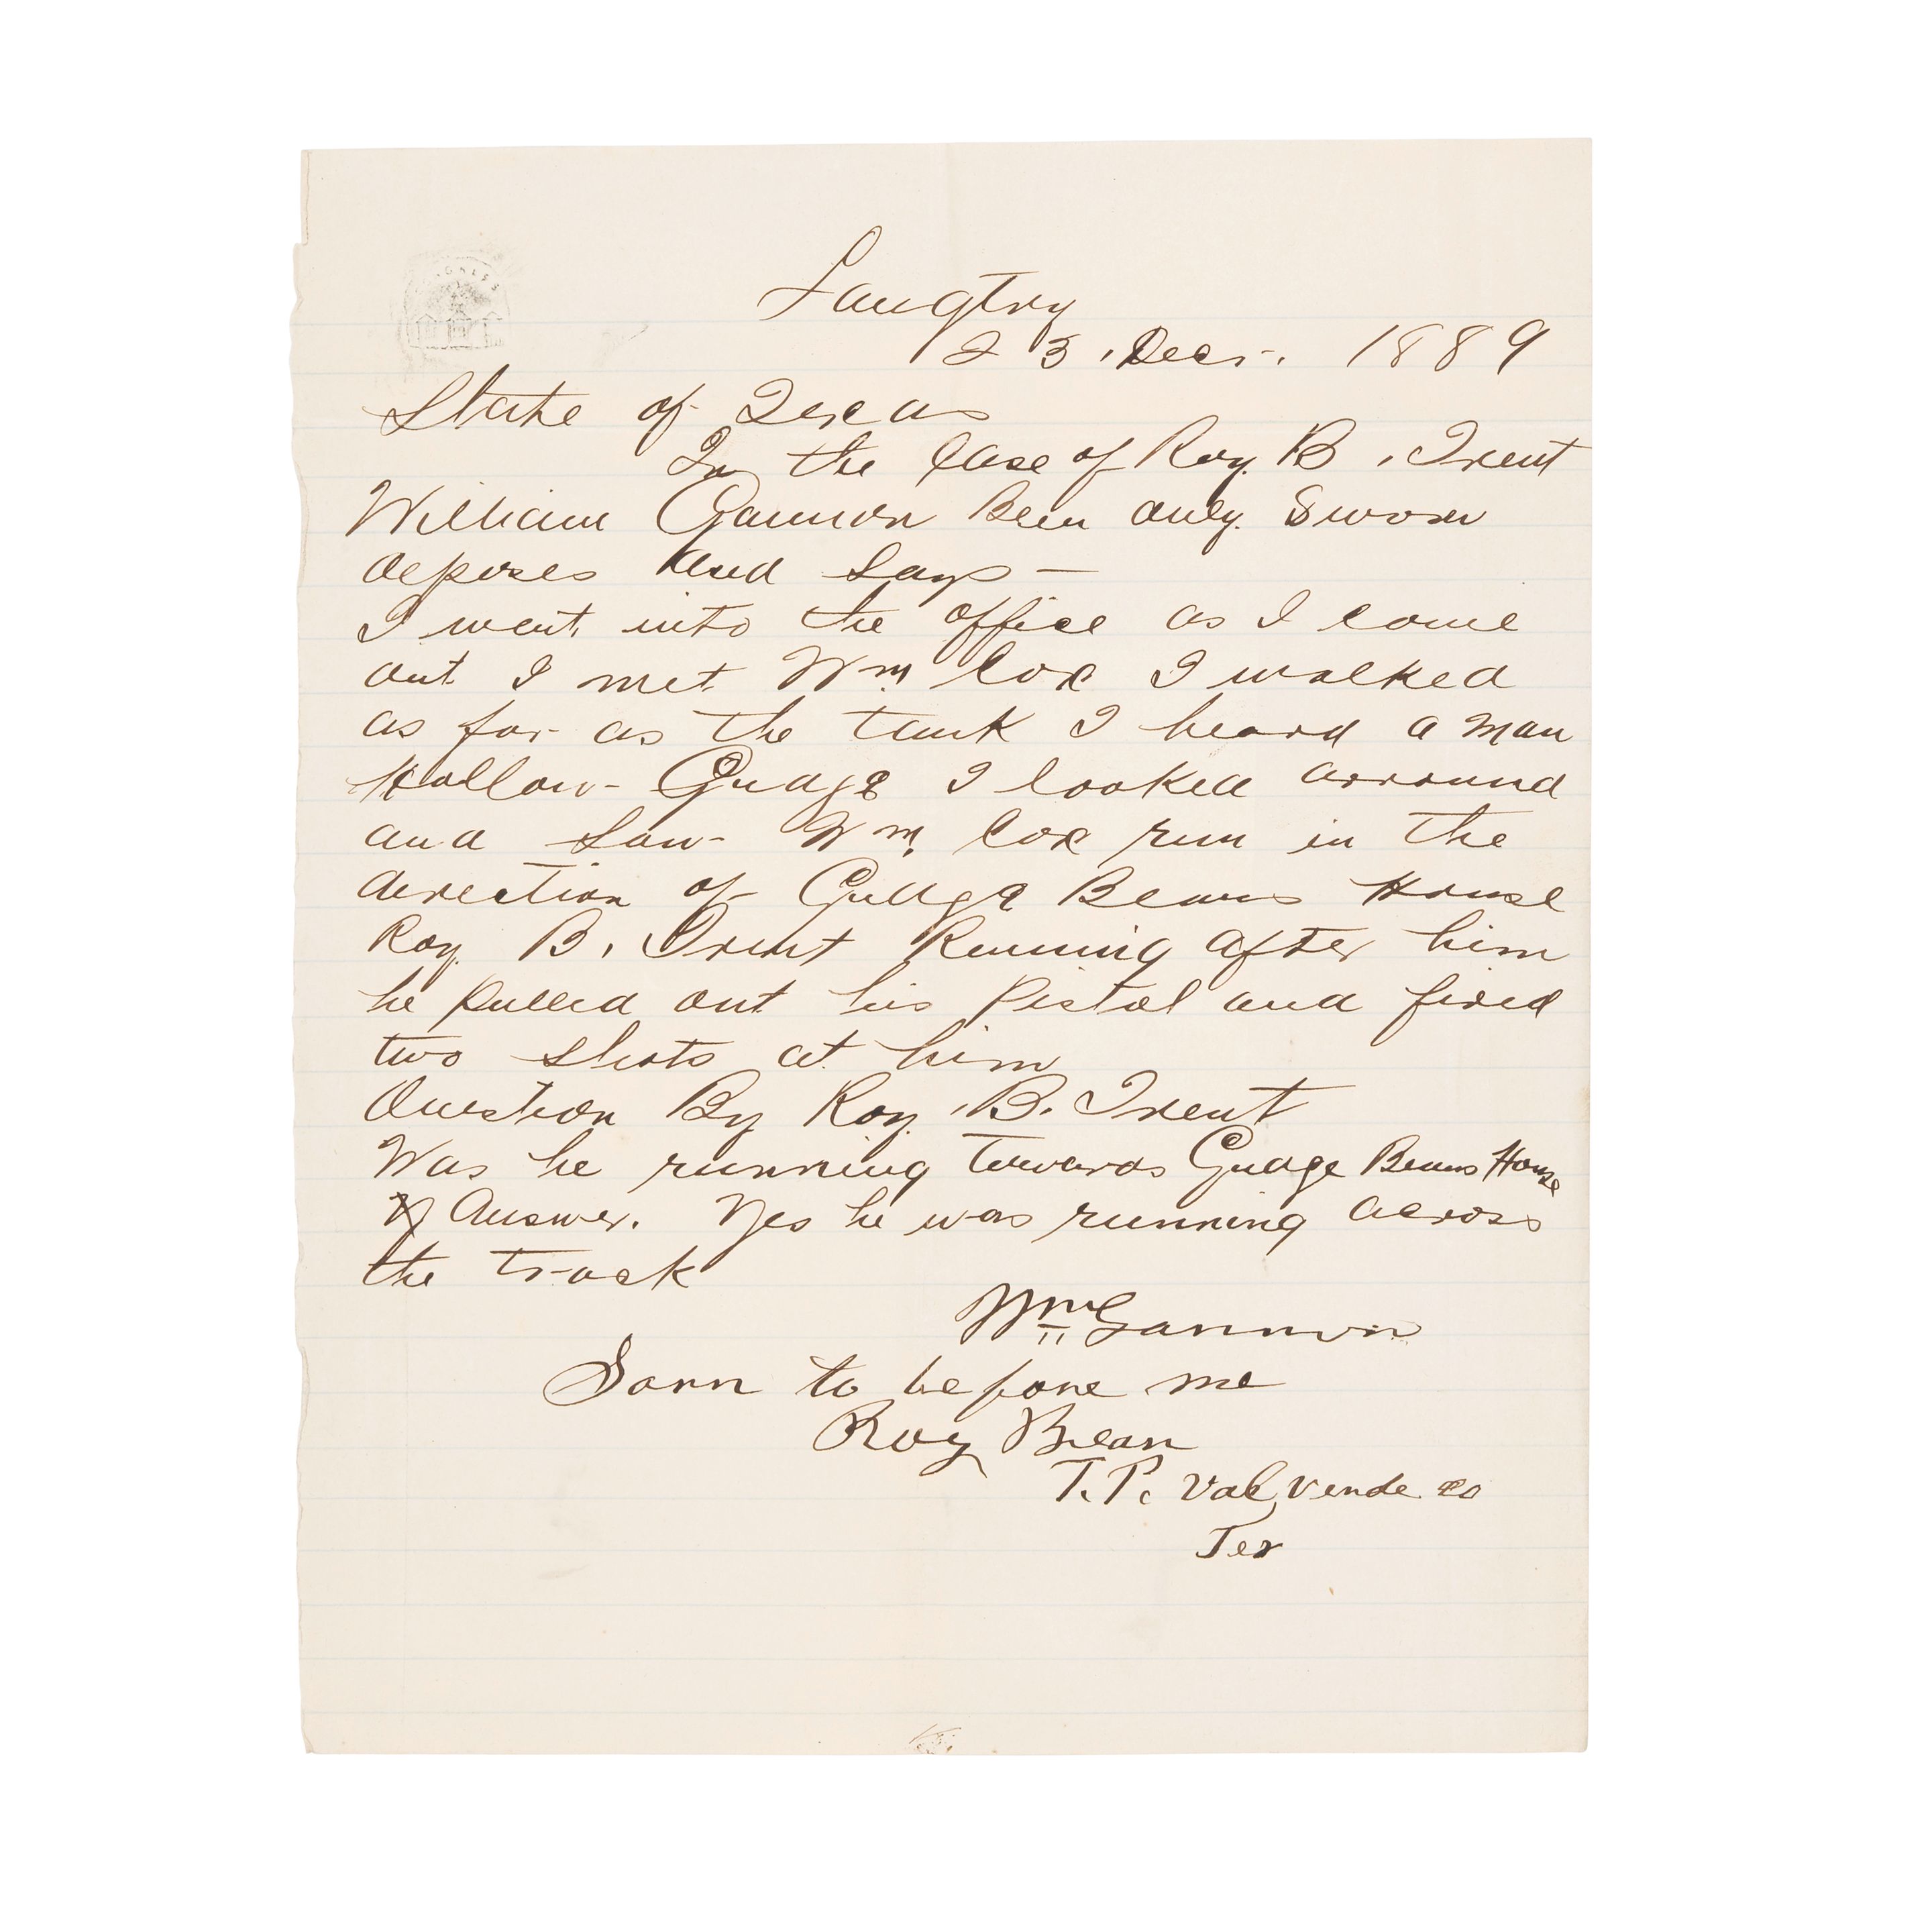 Langtry
23, Decr. 1889
State of Texas
In the Case of Roy. B. Trent
William Gannon Been duly. Sworn
deposes and Says —
I went into the office as I come
out I met Wm Cox I walked
as far as the tank I heard a man
Hollow- Gudge I looked arround
and Saw Wm. Cox run in the
direction of Gudge Beans House
Roy. B. Trent Running after him
he Pulled out his Pistol and fired
two shots at him
Question By Roy. B. Trent
Was he running towards Gudge Beans House
Answer. Yes he was running across
the track
Wm Gannon
Sorn to before me
Roy Bean
J.P. Val verde Co
Tex